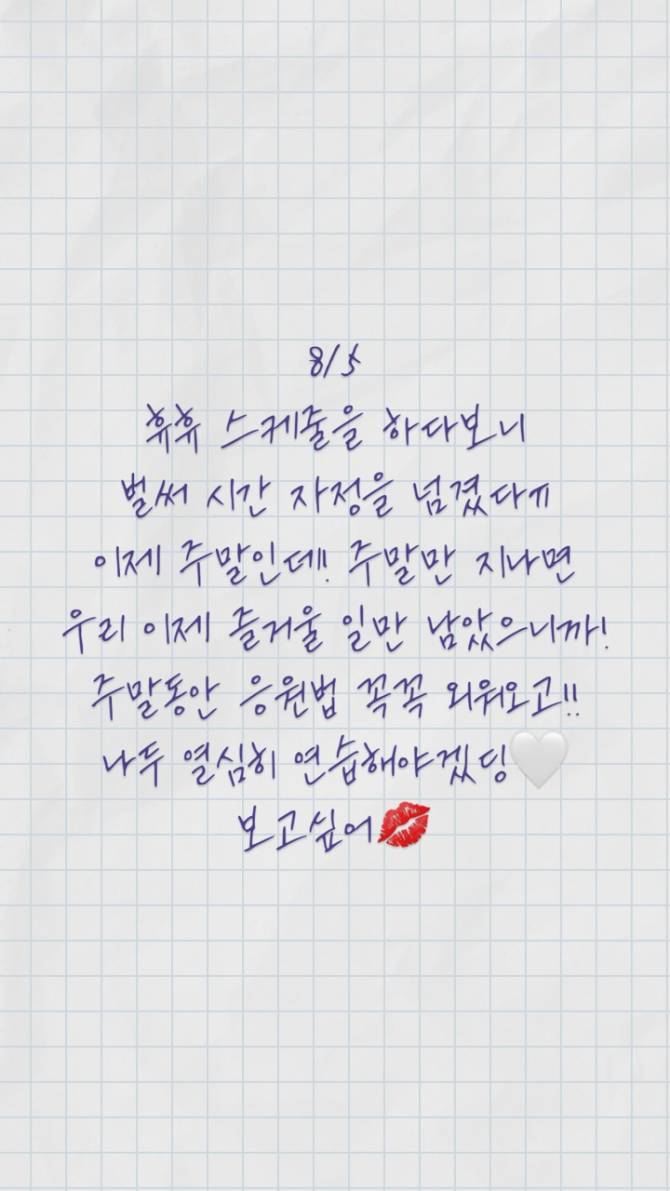 8/5
휴휴 스케줄을 하다보니
벌써 시간 자정을 넘겼다ㅠ
이제 주말인데! 주말만 지나면
우리 이제 즐거울 일만 남았으니까!
주말동안 응원법 꼭꼭 외워오고!!
나두 열심히 연습해야겠딩🤍
보고싶어💋